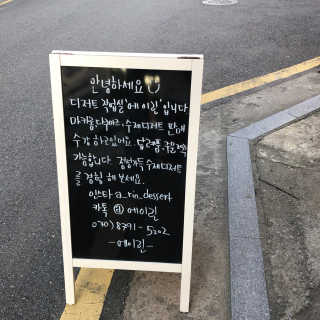 안녕하세요
디저트 작업실 '에이린' 입니다
마카롱 다쿠아즈, 수제디저트 판매
수강 하고있어요. 답례품, 주문제작
가능합니다. 정성가득 수제디저트
를 경험 해보세요.
인스타 a_rin_dessert
카톡 에이린
070) 8391-5202
-에이린-